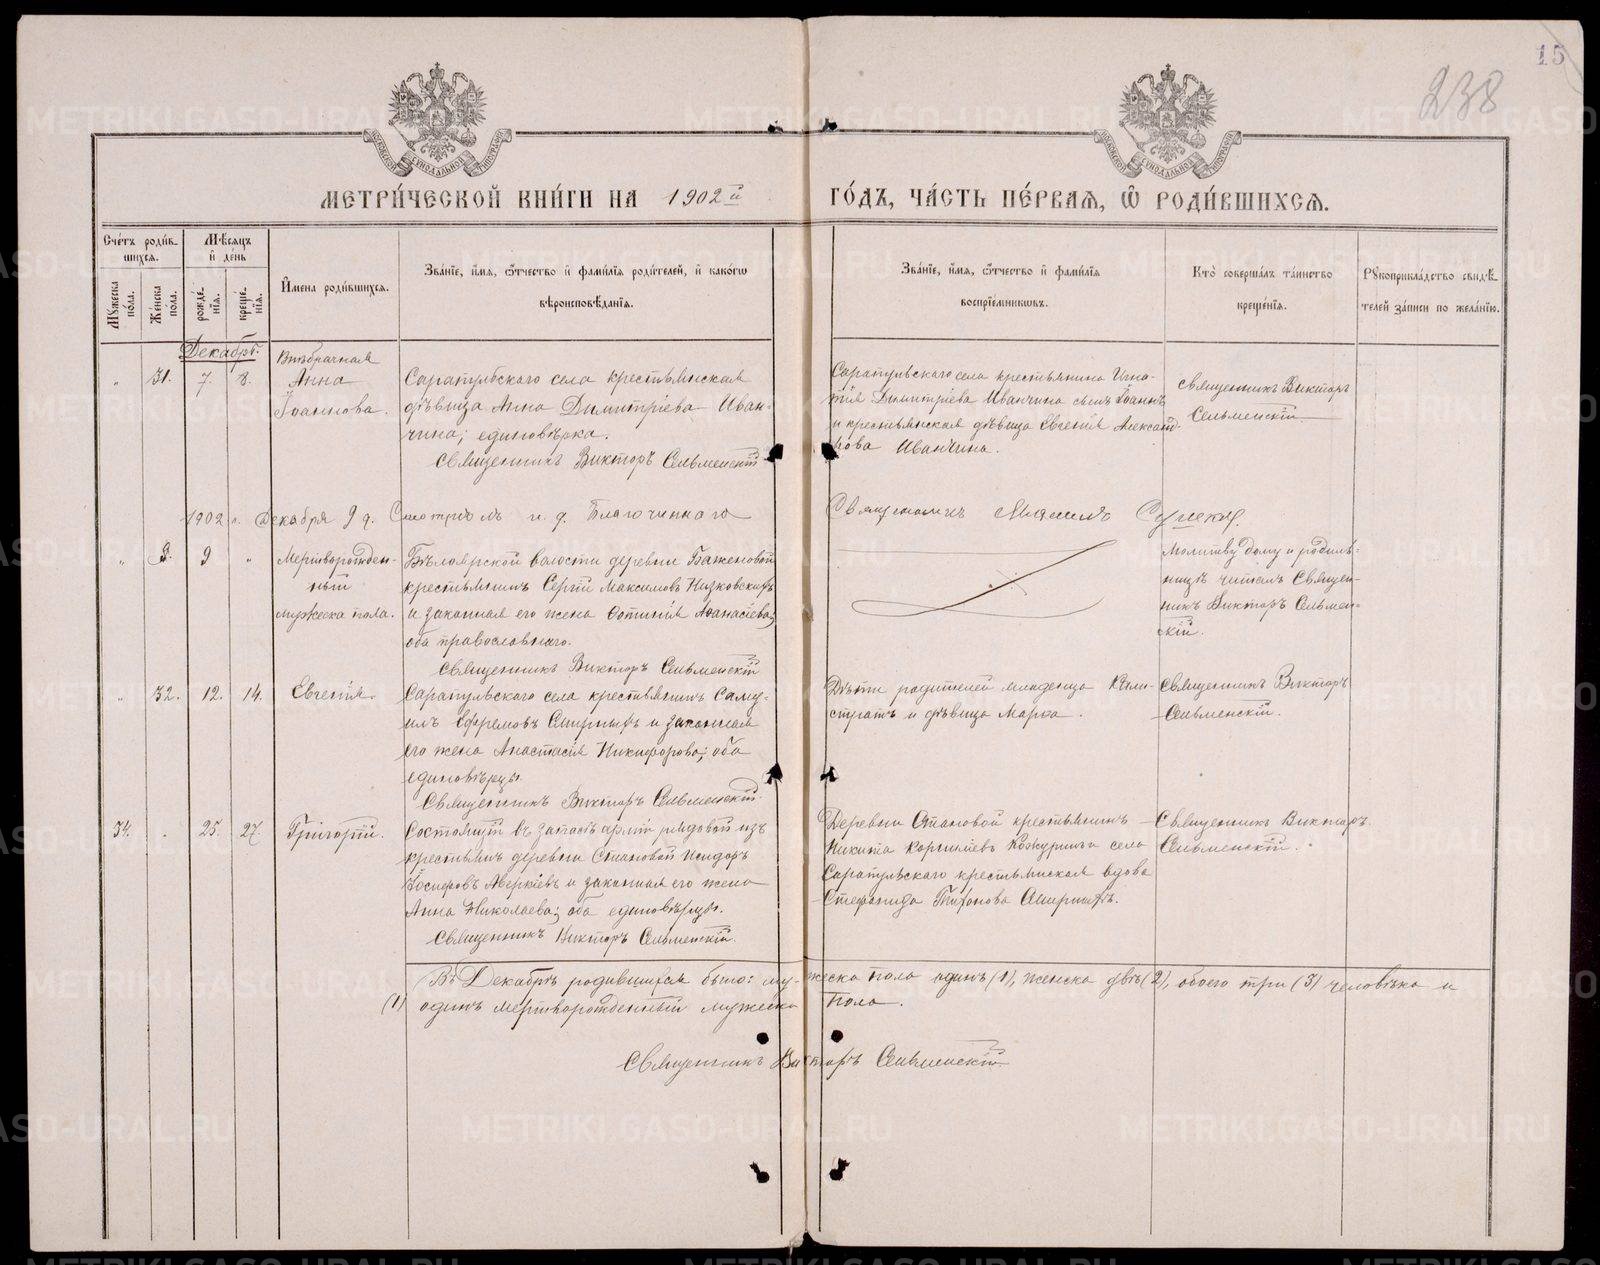 15
238
МЕТРИ́ЧЕСКОЙ КНИ́ГИ НА 1902й ГО́ДЪ, ЧА́СТЬ ПЕ́РВАЯ, Ѡ РОДИ́ВШИХСЯ.
Сче́тъ роди́в-
шихся.
Мѣ́сяцъ
и де́нь
Му́жеска
по́ла.
Же́нска
по́ла.
рожде́-
нія.
креще́-
нія.
И́мена роди́вшихся.
Зва́ніе, и́мя, ѻ́тчество и фами́лія роди́телей, и како́гѡ
вѣроисповѣ́данія.
Зва́ніе, и́мя, ѻ́тчество и фами́лія
воспріе́мниковъ.
Кто̀ соверша́лъ та́инство
креще́нія.
Рꙋкоприкла́дство свидѣ́-
телей за́писи по жела́нію.
Декабрь.
31. 7. 8.
Внѣбрачная
Анна
Іоаннова.
Сарапульскаго села крестьянская
дѣвица Анна Димитріева Иван-
чина; единовѣрка.
Священникъ Викторъ Сельменскій
Сарапульскаго села крестьянина Игна-
тія Димитріева Иванчина сынъ Іоаннъ
и крестьянская дѣвица Евгенія Александ-
рова Иванчина.
Священникъ Викторъ
Сельменскій
1902 г. Декабря 9 д. Смотрѣлъ и. д. Благочиннаго Священникъ
9 "
Мертворожден-
ный
мужеска пола.
Бѣлоярской волости деревни Баженовой
крестьянинъ Сергій Максимовъ Низковскихъ
и законная его жена Фотинія Аѳанасіева;
оба православнаго.
Священникъ Викторъ Сельменскій
Молитву дому и родиль-
ницѣ читалъ Священ-
никъ Викторъ Сельмен-
скій.
" 32. 12. 14. Евгенія.
Сарапульскаго села крестьянинъ Саму-
илъ Ефремовъ Смирныхъ и законная
его жена Анастасія Никифорова; оба
единовѣрцы.
Священникъ Викторъ Сельменскій.
Дѣти родителей младенца Кали-
стратъ и дѣвица Марѳа.
Священникъ Викторъ
Сельменскій.
34. " 25. 27. Григорій.
Состоящій въ запасѣ арміи рядовой изъ
крестьянъ деревни Становой Исидоръ
Іосифовъ Аверкіевъ и законная его жена
Анна Николаева; оба единовѣрцы.
Священникъ Викторъ Сельменскій.
Деревни Становой крестьянинъ
Никита Корниліевъ Кокшуринъ и села
Сарапульскаго крестьянская вдова
Стефанида Тихонова Смирныхъ.
Священникъ Викторъ
Сельменскій.
Въ Декабрѣ родившихся было: мужеска пола одинъ (1), женска двѣ (2), обоего три (3) человѣка и
(1) одинъ мертворожденный мужеска пола.
Священникъ Викторъ Сельменскій